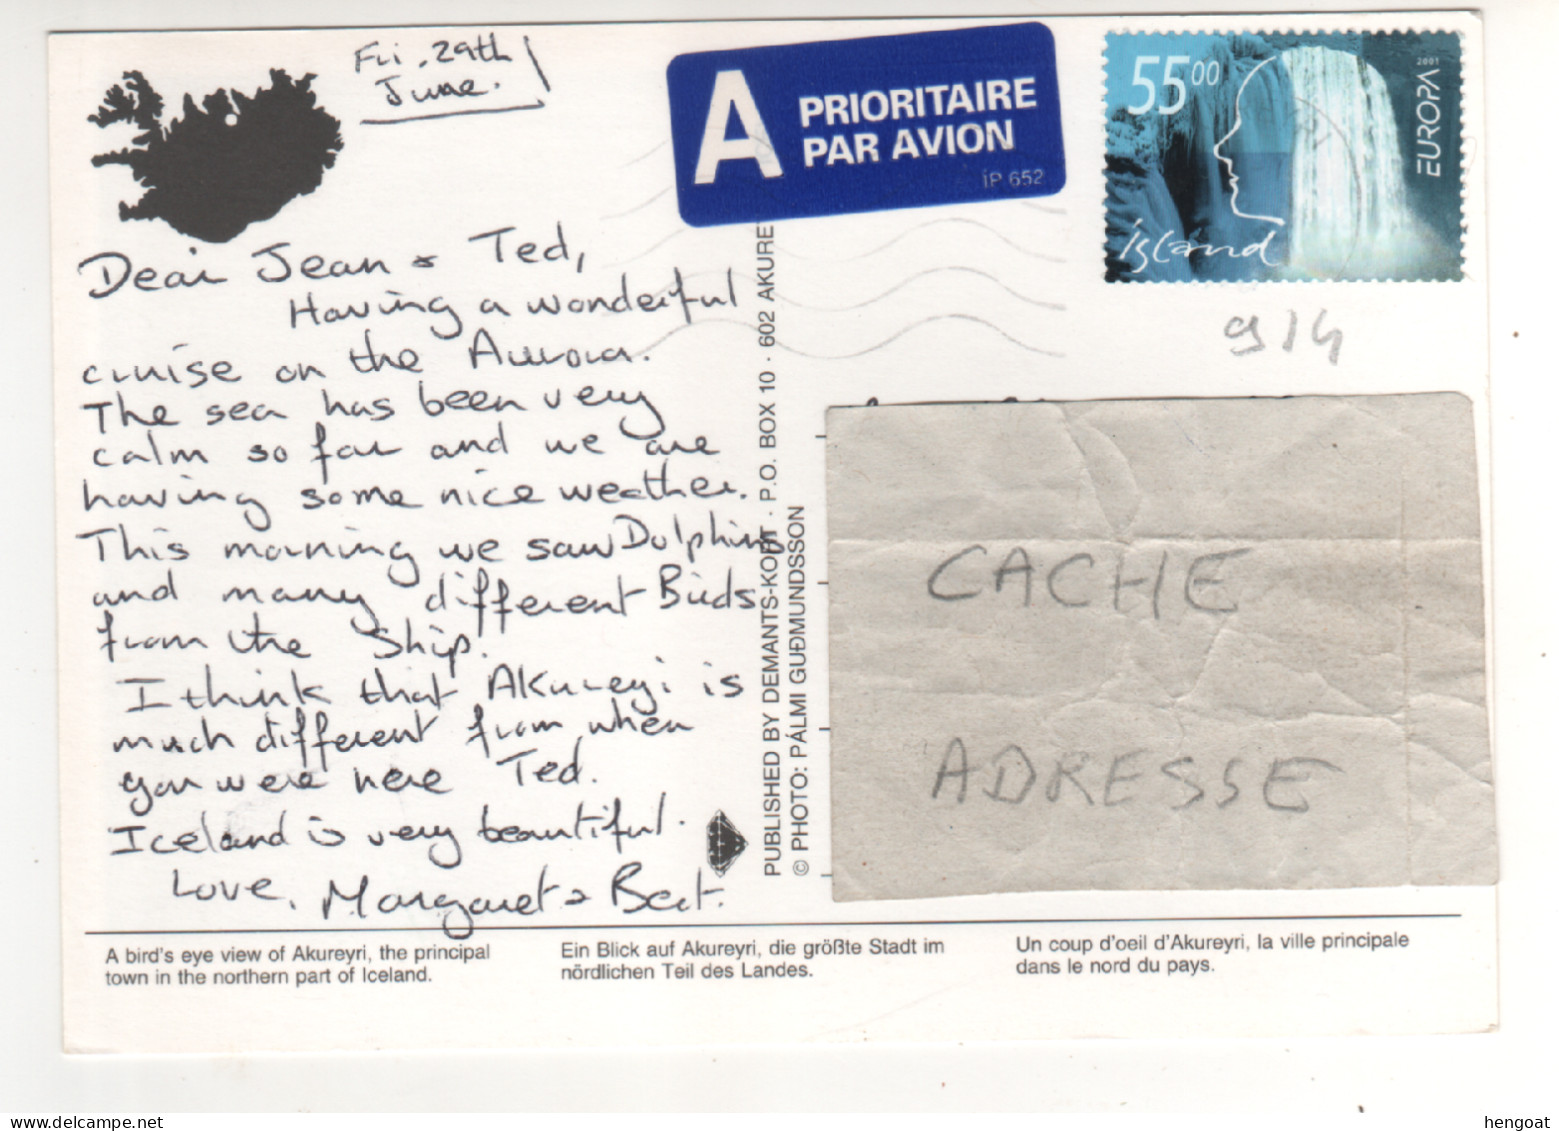 Fri. 29th
June.
A PRIORITAIRE
PAR AVION
ÍP 652
55 00
EUROPA 2001
ísland
914
Dear Jean & Ted,
Having a wonderful
cruise on the Aurora.
The sea has been very
calm so far and we are
having some nice weather.
This morning we saw Dolphins
and many different Birds
from the Ship.
I think that Akureyi is
much different from when
you were here Ted.
Iceland is very beautiful.
Love, Margaret & Bert.
PUBLISHED BY DEMANTS-KORT · P.O. BOX 10 · 602 AKURE
© PHOTO: PÁLMI GUÐMUNDSSON
CACHE
ADRESSE
A bird's eye view of Akureyri, the principal
town in the northern part of Iceland.
Ein Blick auf Akureyri, die größte Stadt im
nördlichen Teil des Landes.
Un coup d'oeil d'Akureyri, la ville principale
dans le nord du pays.
hengoat